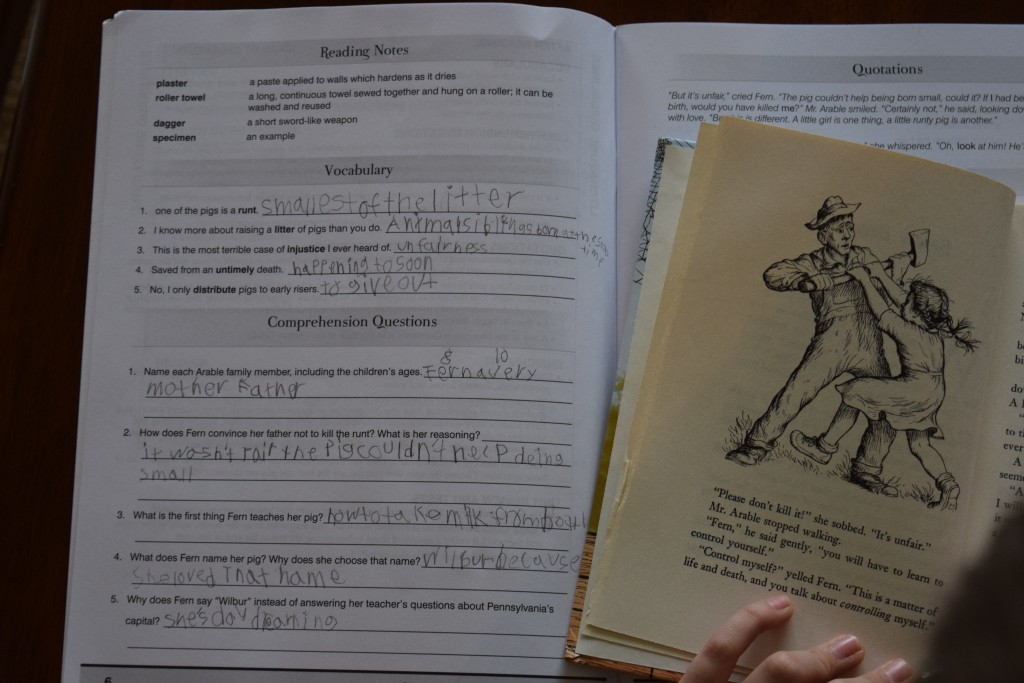 Reading Notes
plaster a paste applied to walls which hardens as it dries
roller towel a long, continuous towel sewed together and hung on a roller; it can be
washed and reused
dagger a short sword-like weapon
specimen an example
Vocabulary
1. one of the pigs is a runt. smallest of the litter
2. I know more about raising a litter of pigs than you do. Animal siblings born at the same
time
3. This is the most terrible case of injustice I ever heard of. unfairness
4. Saved from an untimely death. happening to soon
5. No, I only distribute pigs to early risers. to give out
Comprehension Questions
8 10
1. Name each Arable family member, including the children's ages. Fern avery
mother Father
2. How does Fern convince her father not to kill the runt? What is her reasoning?
it wasn't fair the Pig couldn't help being
small
3. What is the first thing Fern teaches her pig? how to take milk from bottle
4. What does Fern name her pig? Why does she choose that name? Wilbur because
she loved That name
5. Why does Fern say "Wilbur" instead of answering her teacher's questions about Pennsylvania's
capital? she's day dreaming
6
Quotations
"But it's unfair," cried Fern. "The pig couldn't help being born small, could it? If I had be
birth, would you have killed me?" Mr. Arable smiled. "Certainly not," he said, looking do
with love. is different. A little girl is one thing, a little runty pig is another."
she whispered. "Oh, look at him! He'
"Please don't kill it!" she sobbed. "It's unfair."
Mr. Arable stopped walking.
"Fern," he said gently, "you will have to learn to
control yourself."
"Control myself?" yelled Fern. "This is a matter of
life and death, and you talk about controlling myself."